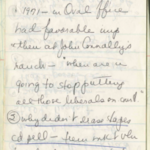 1971 — in Oval Office
had favorable imp
& then at John Connally's
ranch — "when are we
going to stop putting
all those liberals on court"
② Why didn't draw tapes